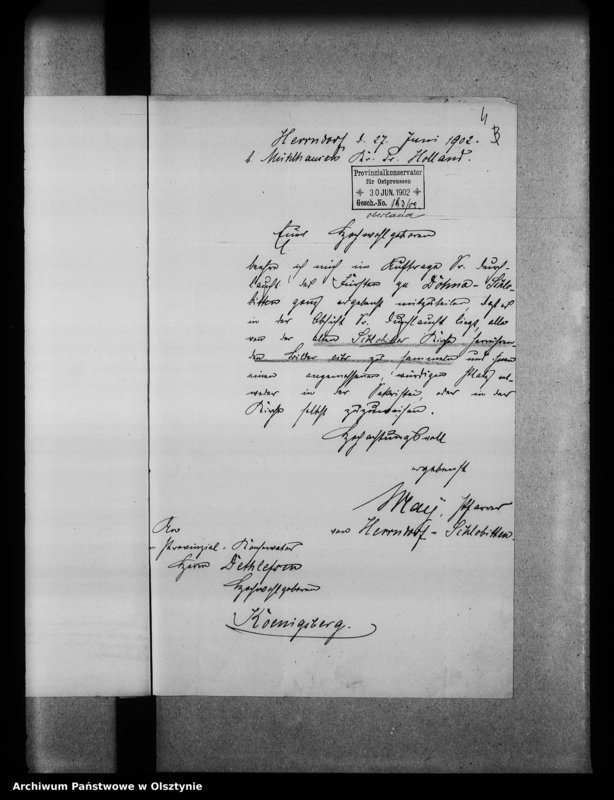 4
Herrndorf d. 27. Juni 1902.
b. Mühlhausen Kr. Pr. Holland.
Provinzialkonservator
für Ostpreussen
30 JUN. 1902
Gesch.-No.
Euer Hochwohlgeboren
beehre ich mich im Auftrage Sr. Durch-
laucht des Fürsten zu Dohna-Schlo-
bitten ganz ergebenst mitzuteilen, daß es
in der Absicht Sr. Durchlaucht liegt, alles
von der alten Schlobitter Kirche herrühren-
den Bilder etc. zu sammeln und ihnen
einen angemessenen, würdigen Platz ent-
weder in der Sakristei, oder in der
Kirche selbst zuzuweisen.
Hochachtungsvoll
ergebenst
May, Pfarrer
von Herrndorf-Schlobitten.
An
Provinzial-Konservator
Herrn Dethlefsen
Hochwohlgeboren
Koenigsberg.
Archiwum Państwowe w Olsztynie